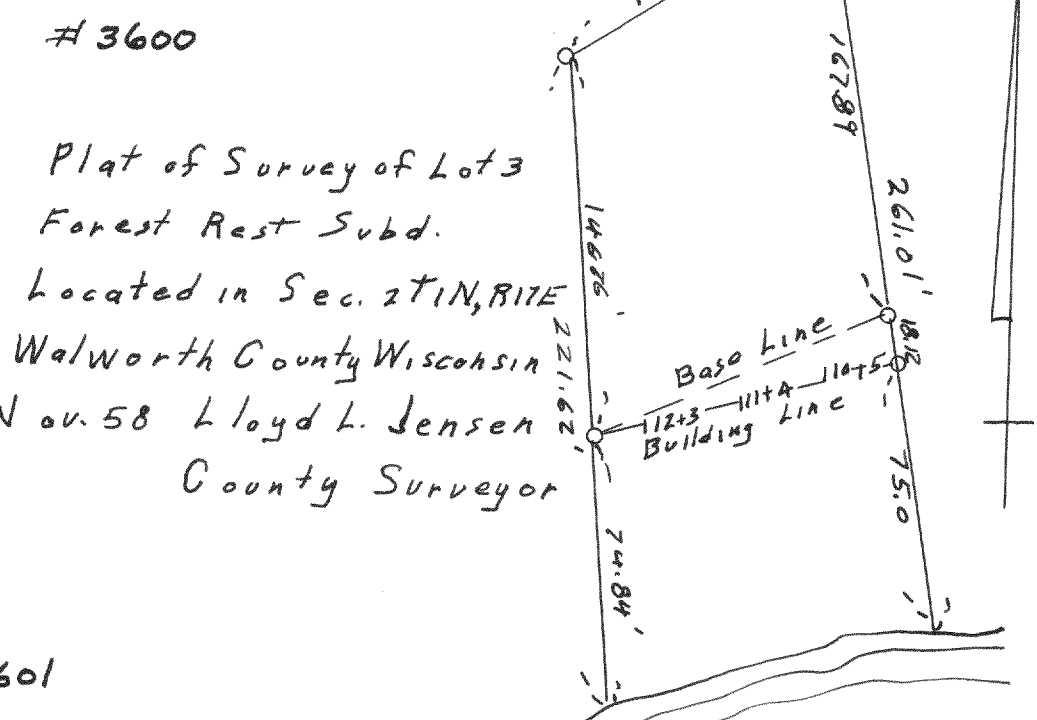 # 3600
Plat of Survey of Lot 3
Forest Rest Subd.
Located in Sec. 2 T1N, R17E
Walworth County Wisconsin
Nov. 58 Lloyd L. Jensen
County Surveyor
601
167.89
261.01'
18.12
75.0
146.76'
221.62'
74.84'
Base Line
112+3 111+4 110+5
Building Line